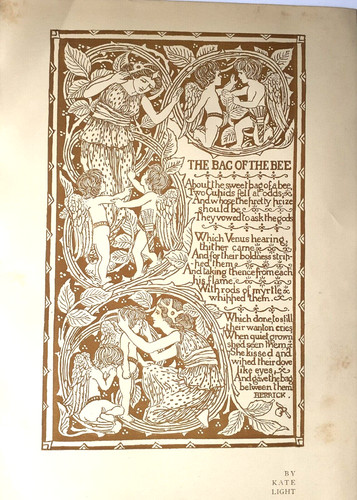 THE BAG OF THE BEE
About the sweet bag of a bee,
Two Cupids fell at odds
And whose the pretty prize
should be
They vowed to ask the gods
Which Venus hearing,
thither came
And for their boldness strip-
ped them
And taking thence from each
his flame
With rods of myrtle
whipped them.
Which done to still
their wanton cries
When quiet grown
she'd seen them
She kissed and
wiped their dove
like eyes,
And gave the bag
between them
HERRICK.
BY
KATE
LIGHT